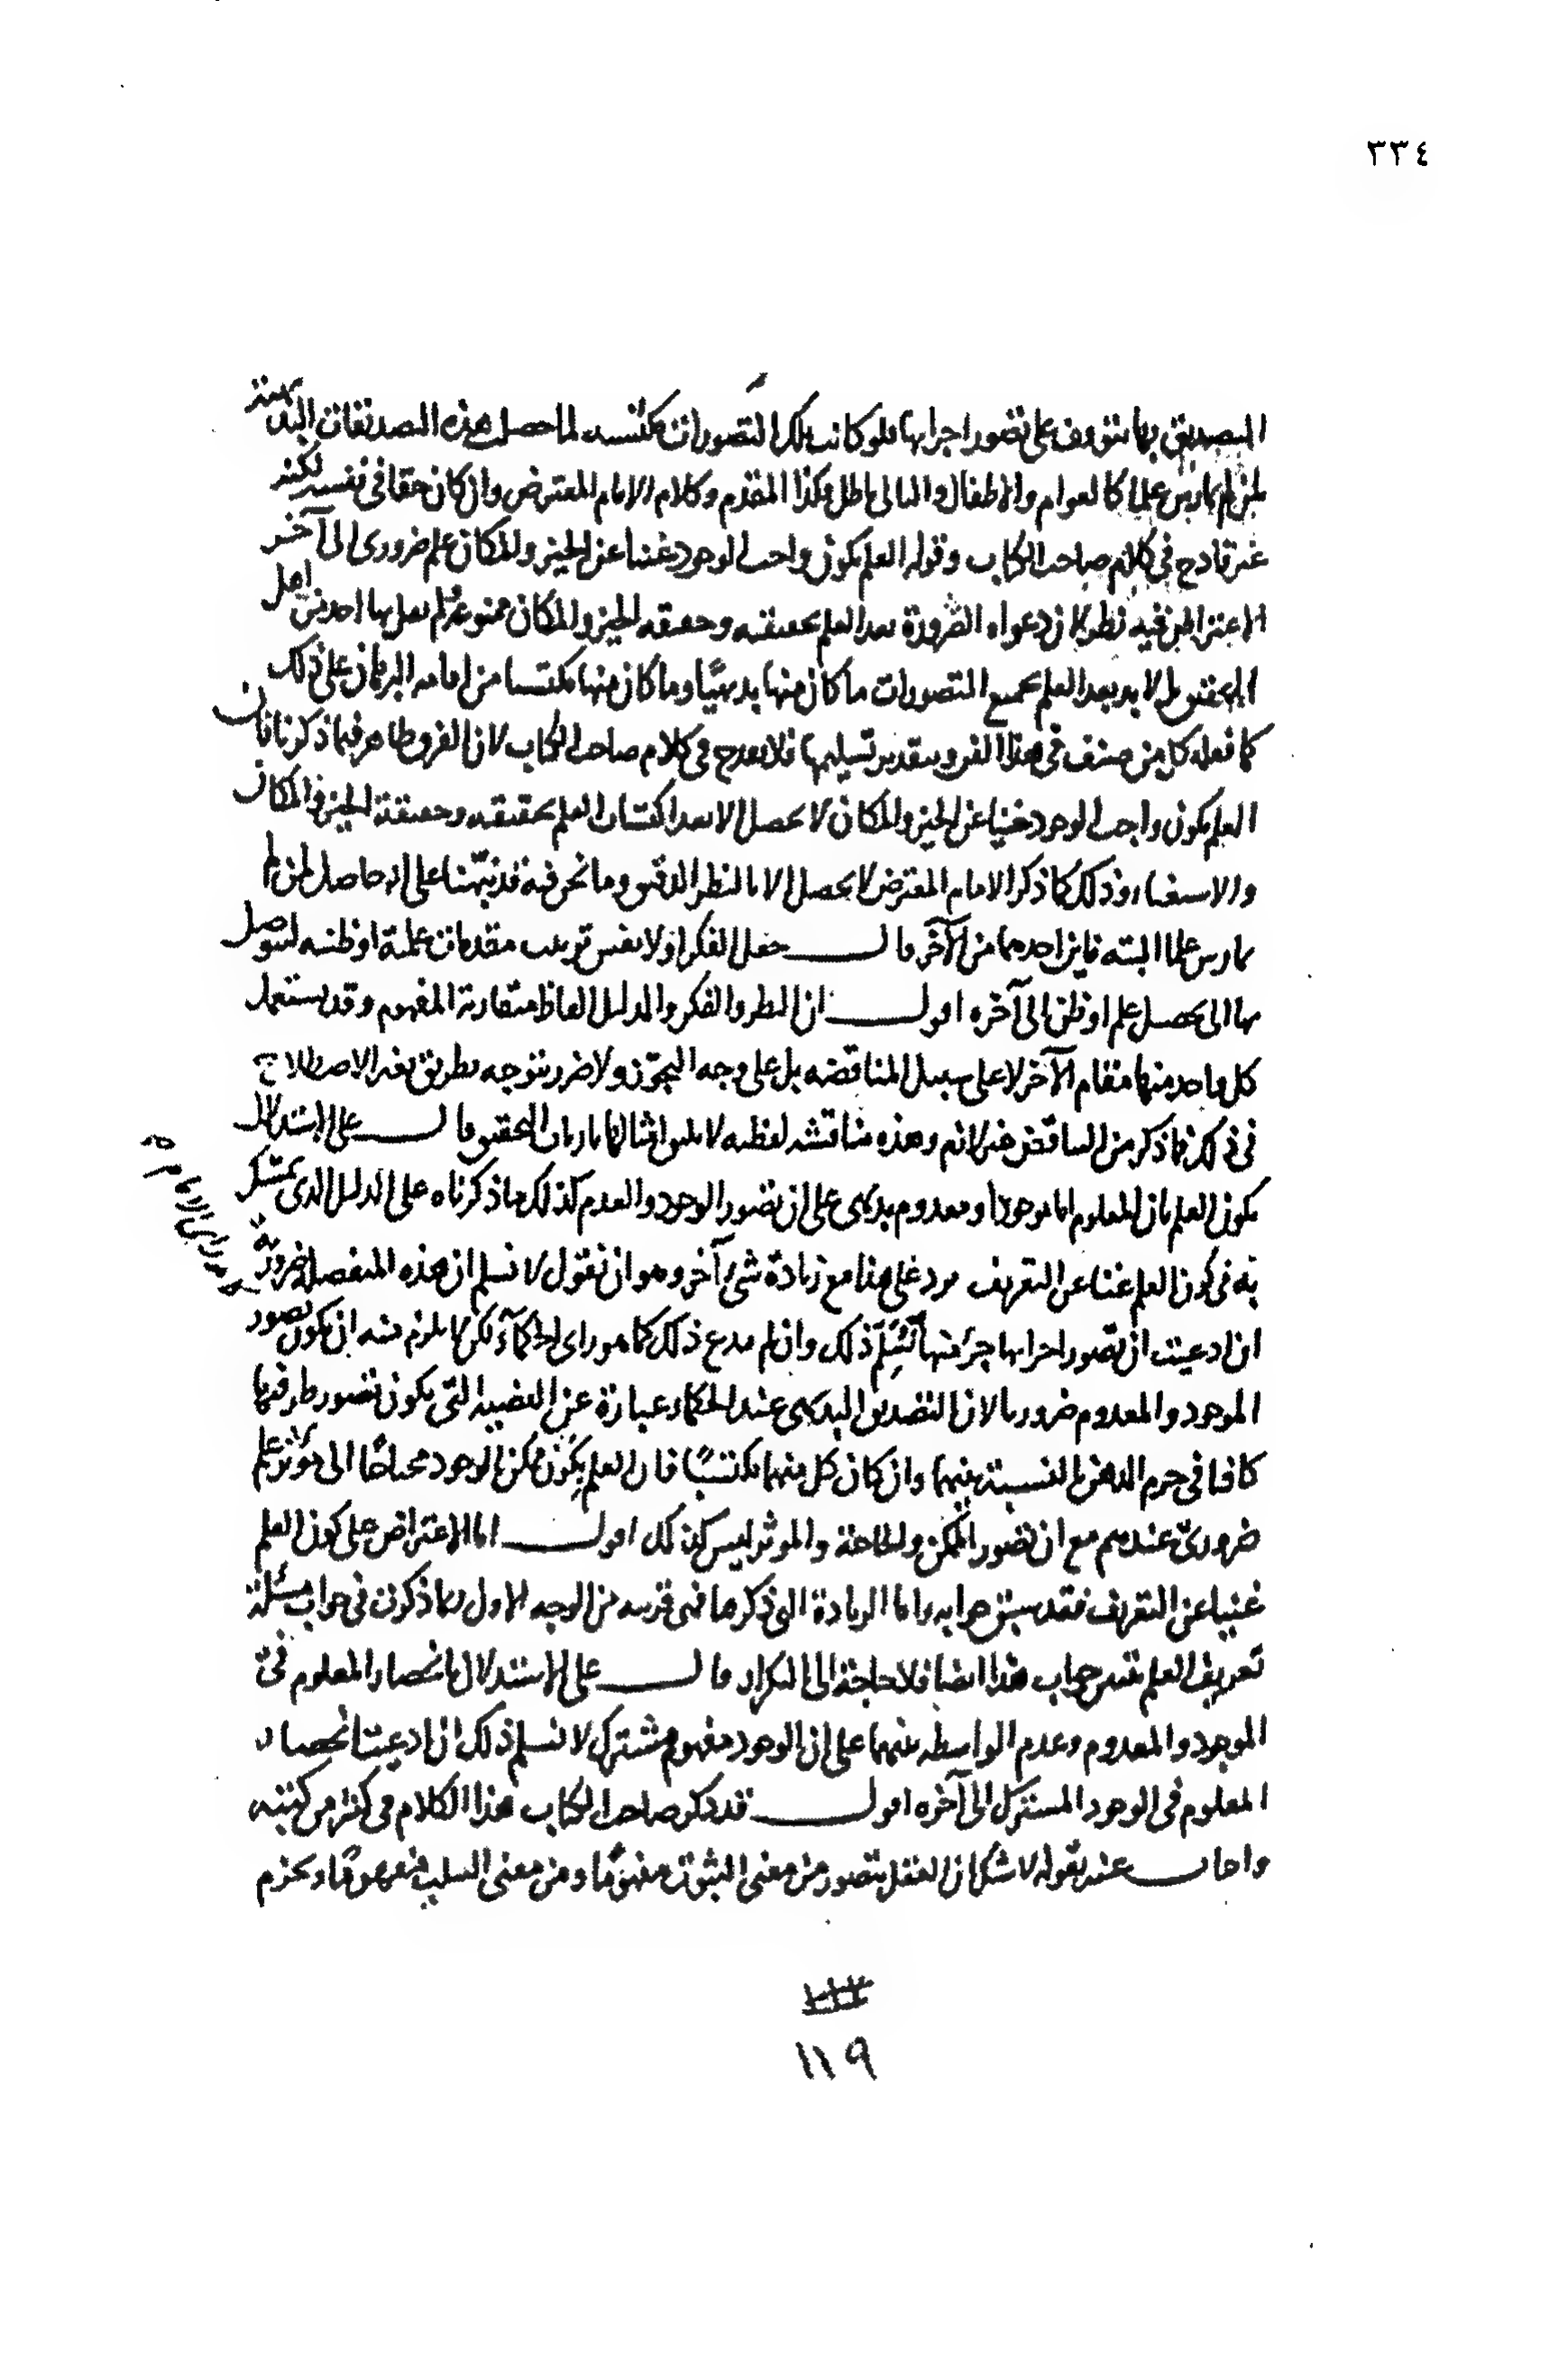 ٣٣٤
التصديق بها يتوقف على تصور اجزايها فلو كانت تلك التصورات مكتسبه لما حصل هذه التصديقات البديهية
لمن لم يمارس علما كالعوام والاطفال والتالى باطل فكذا المقدم وكلام الامام المعترض وان كان حقا فى نفسه لكنه
غير قادح فى كلام صاحب الكتاب وقوله العلم بكون واجب الوجود غنيا عن الحيز والمكان علم ضرورى الى آخر
الاعتراض فيه نظر لان دعواه الضرورة بعد العلم بحقيقته وحقيقه الحيز والمكان ممنوعة لم يقل بها احد من اهل
التحقيق بل لا بد بعد العلم بجميع التصورات ما كان منها بديهيًا وما كان منها مكتسبا من اقامه البرهان على ذلك
كما فعله كل من صنف فى هذا الفن وبتقدير تسليمها فلا يقدح فى كلام صاحب الكتاب لان الفرق ظاهر فيما ذكرنا فان
العلم بكون واجب الوجود غنيا عن الحيز والمكان لا يحصل الا بعد اكتساب العلم بحقيقته وحقيقة الحيز والمكان
والاستغناء وذلك كما ذكر الامام المعترض لا يحصل الا بالنظر الدقيق وما نحن فيه قد نبّهنا على انه حاصل لمن لم
يمارس علما البتة فاين احدهما من الآخر قال جعل الفكر اولا نفس ترتيب مقدمات علمية او ظنيه ليتوصل
بها الى تحصيل علم او ظن الى آخره اقول ان النظر والفكر والدليل الفاظ متقاربة المفهوم وقد يستعمل
كل واحد منها مقام الآخر لا على سبيل المناقضه بل على وجه التجوّز ولا ضرر يتوجه بطريق تغير الاصطلاح
فى ذلك فما ذكر من التناقض غير لازم وهذه مناقشه لفظيه لا يليق امثالها بارباب التحقيق قال على الاستدلال
بكون العلم بان المعلوم اما موجود او معدوم بديهى على ان تصور الوجود والعدم كذلك ما ذكرناه على الدليل الذى تمسك
به فى كون العلم غنيا عن التعريف يرد على هذا مع زيادة شىء آخر وهو ان نقول لا نسلم ان هذه المنفصلة ضرورية
ان ادعيت ان تصور اجزايها جزء منها نسلّم ذلك وان لم تدع ذلك كما هو راى الحكمآء لكن لا يلزم منه ان يكون تصور
الموجود والمعدوم ضروريا لان التصديق البديهى عند الحكماء عبارة عن القضية التى يكون تصور طرفيها
كافيا فى جزم الذهن بالنسبة بينهما وان كان كل منهما مكتسبًا فان العلم بكون ممكن الوجود محتاجًا الى مؤثر علم
ضرورىّ عندهم مع ان تصور الممكن والحاجة والموثر ليس كذلك اقول اما الاعتراض على كون العلم
غنيا عن التعريف فقد سبق جوابه واما الزيادة التى ذكرها فهى قريبه من الوجه الاول مما ذكره فى جواب مسئلة
تعريف العلم فقد جواب هذا ايضا فلا حاجة الى التكرار قال على الاستدلال بانحصار المعلوم فى
الموجود والمعدوم وعدم الواسطه بينهما على ان الوجود مفهوم مشترك لا نسلم ذلك ان ادعيت انحصار
المعلوم فى الوجود المشترك الى آخره اقول قد ذكر صاحب الكتاب هذا الكلام فى كثير من كتبه
واجاب عنه بقوله لا شك ان العقل يتصور من معنى الثبوت مفهومًا ومن معنى السلب مفهومًا ويجزم
١١٩